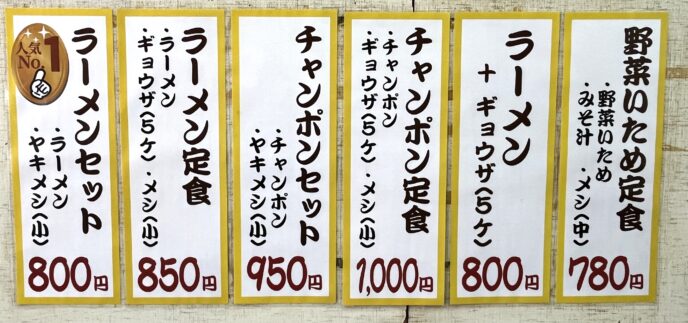 野菜いため定食
・野菜いため ・メシ(中)
・みそ汁
780円
ラーメン
+ ギョウザ(5ヶ)
800円
チャンポン定食
・チャンポン
・ギョウザ(5ヶ) ・メシ(小)
1,000円
チャンポンセット
・チャンポン
・ヤキメシ(小)
950円
ラーメン定食
・ラーメン
・ギョウザ(5ケ) ・メシ(小)
850円
人気No.1
ラーメンセット
・ラーメン
・ヤキメシ(小)
800円